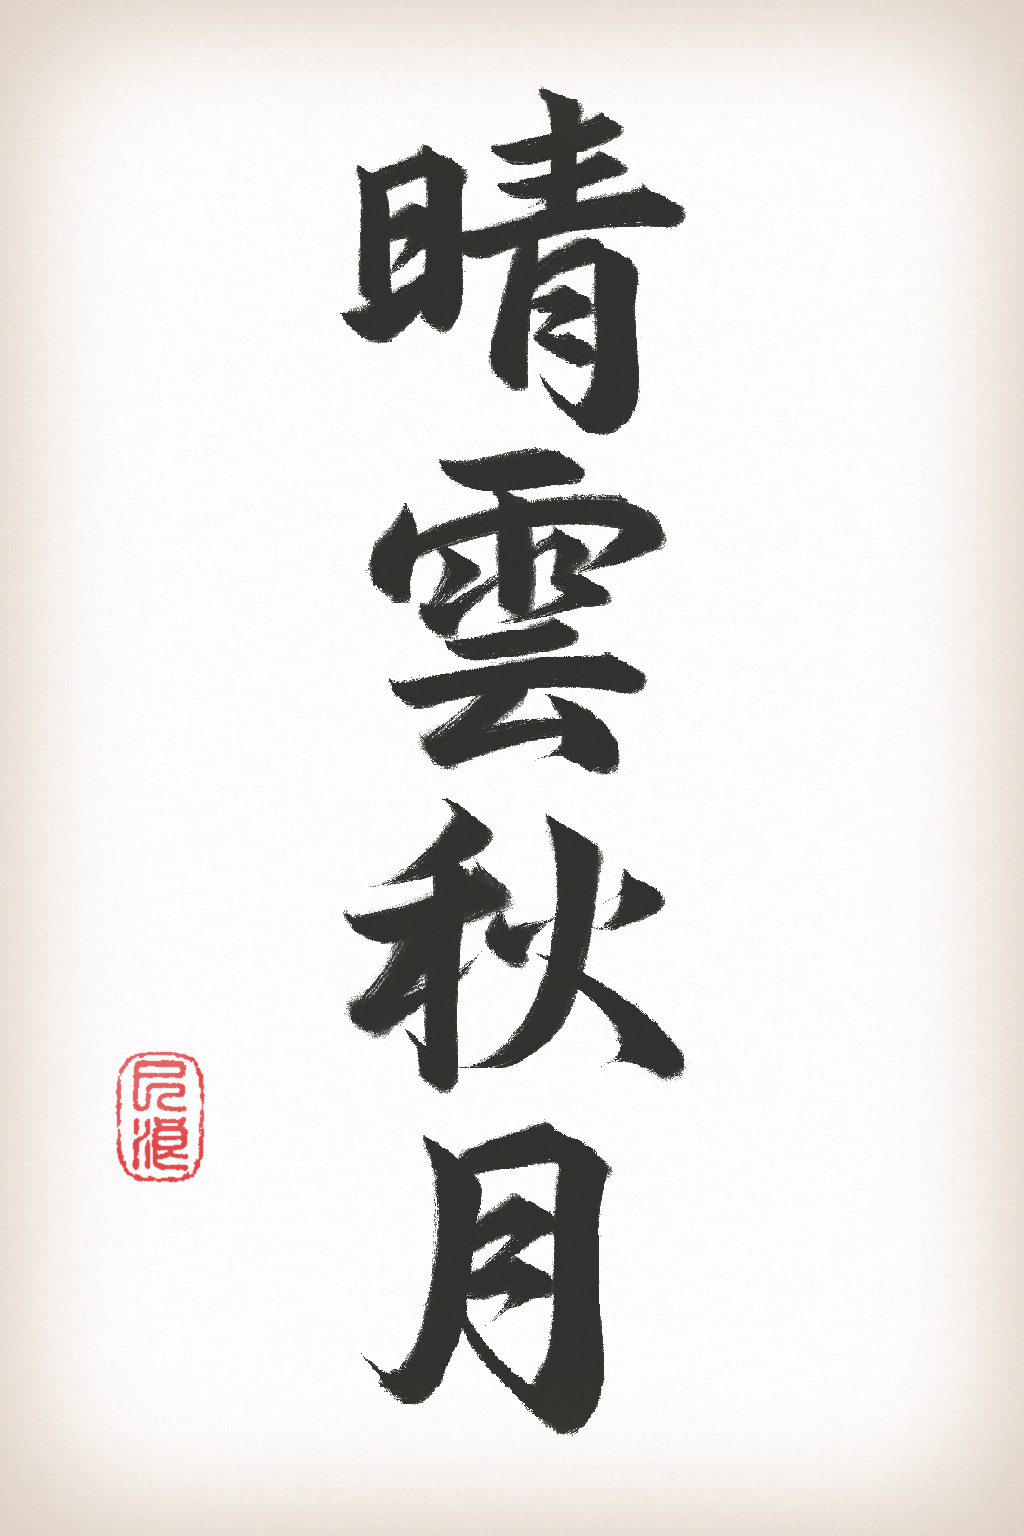 晴雲秋月